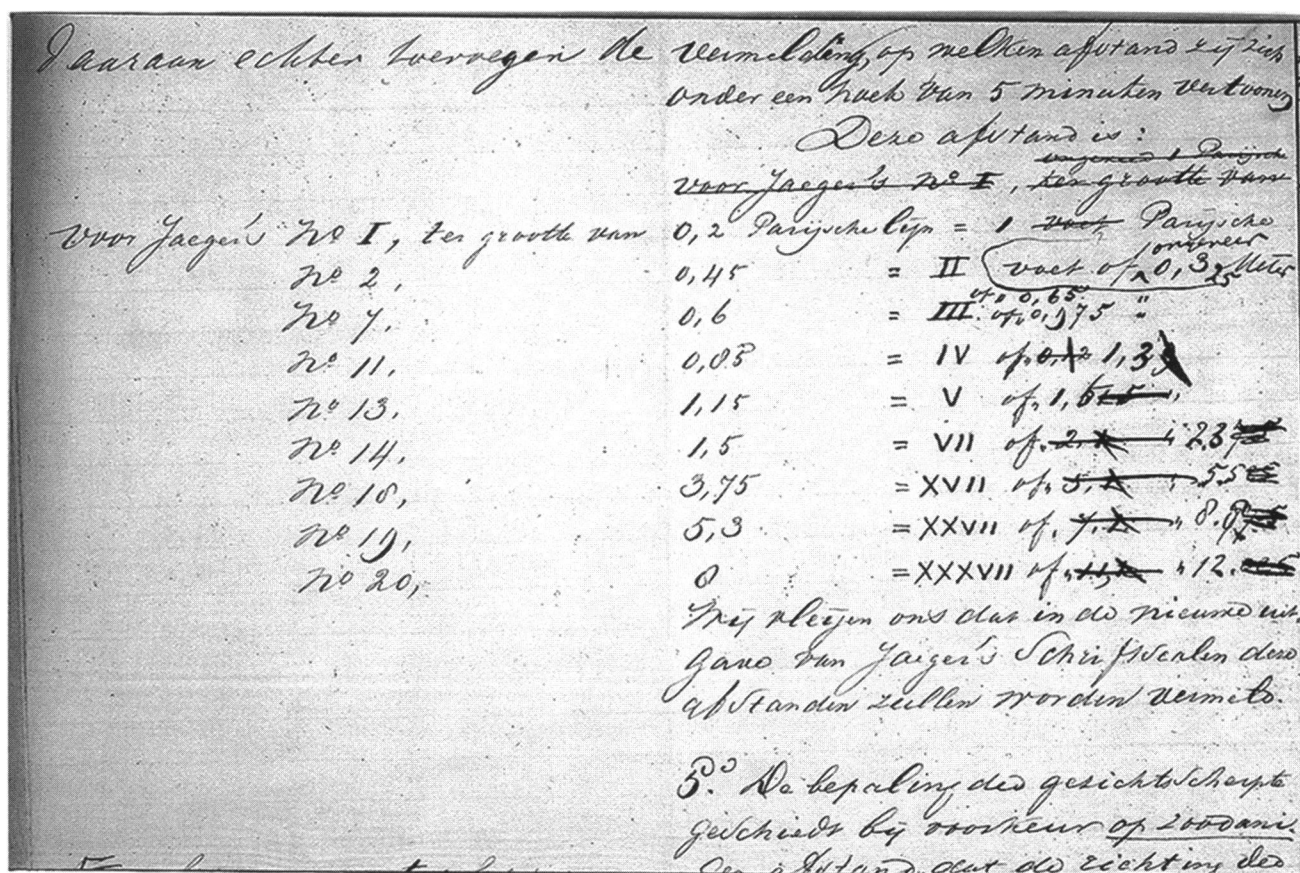 Daaraan echter toevoegen de vermelding, op welken afstand zij zich
onder een hoek van 5 minuten vertoonen
Deze afstand is:
ongeveer 1 Parijsche
voor Jaeger's No I, ter grootte van
voor Jaeger's No I, ter grootte van 0,2 Parijsche lijn = 1 voet Parijsche
ongeveer
No 2, 0,45 = II voet of 0,325 Meter
of " 0,65 "
No 7, 0,6 = III of " 0,975 "
No 11, 0,85 = IV of 1,3
No 13, 1,15 = V of " 1,6
No 14, 1,5 = VII of " 2. " 2.3
No 18, 3,75 = XVII of " 5, " 5.5
No 19, 5,3 = XXVII of " 7. " 8.
No 20, 8 = XXXVII of " " 12.
Wij vleijen ons dat in de nieuwe uit-
gave van Jaeger's Schriftscalen deze
afstanden zullen worden vermeld.
5o. De bepaling der gezichtsscherpte
geschiedt bij voorkeur op zoodani-
gen afstand, dat de richting der